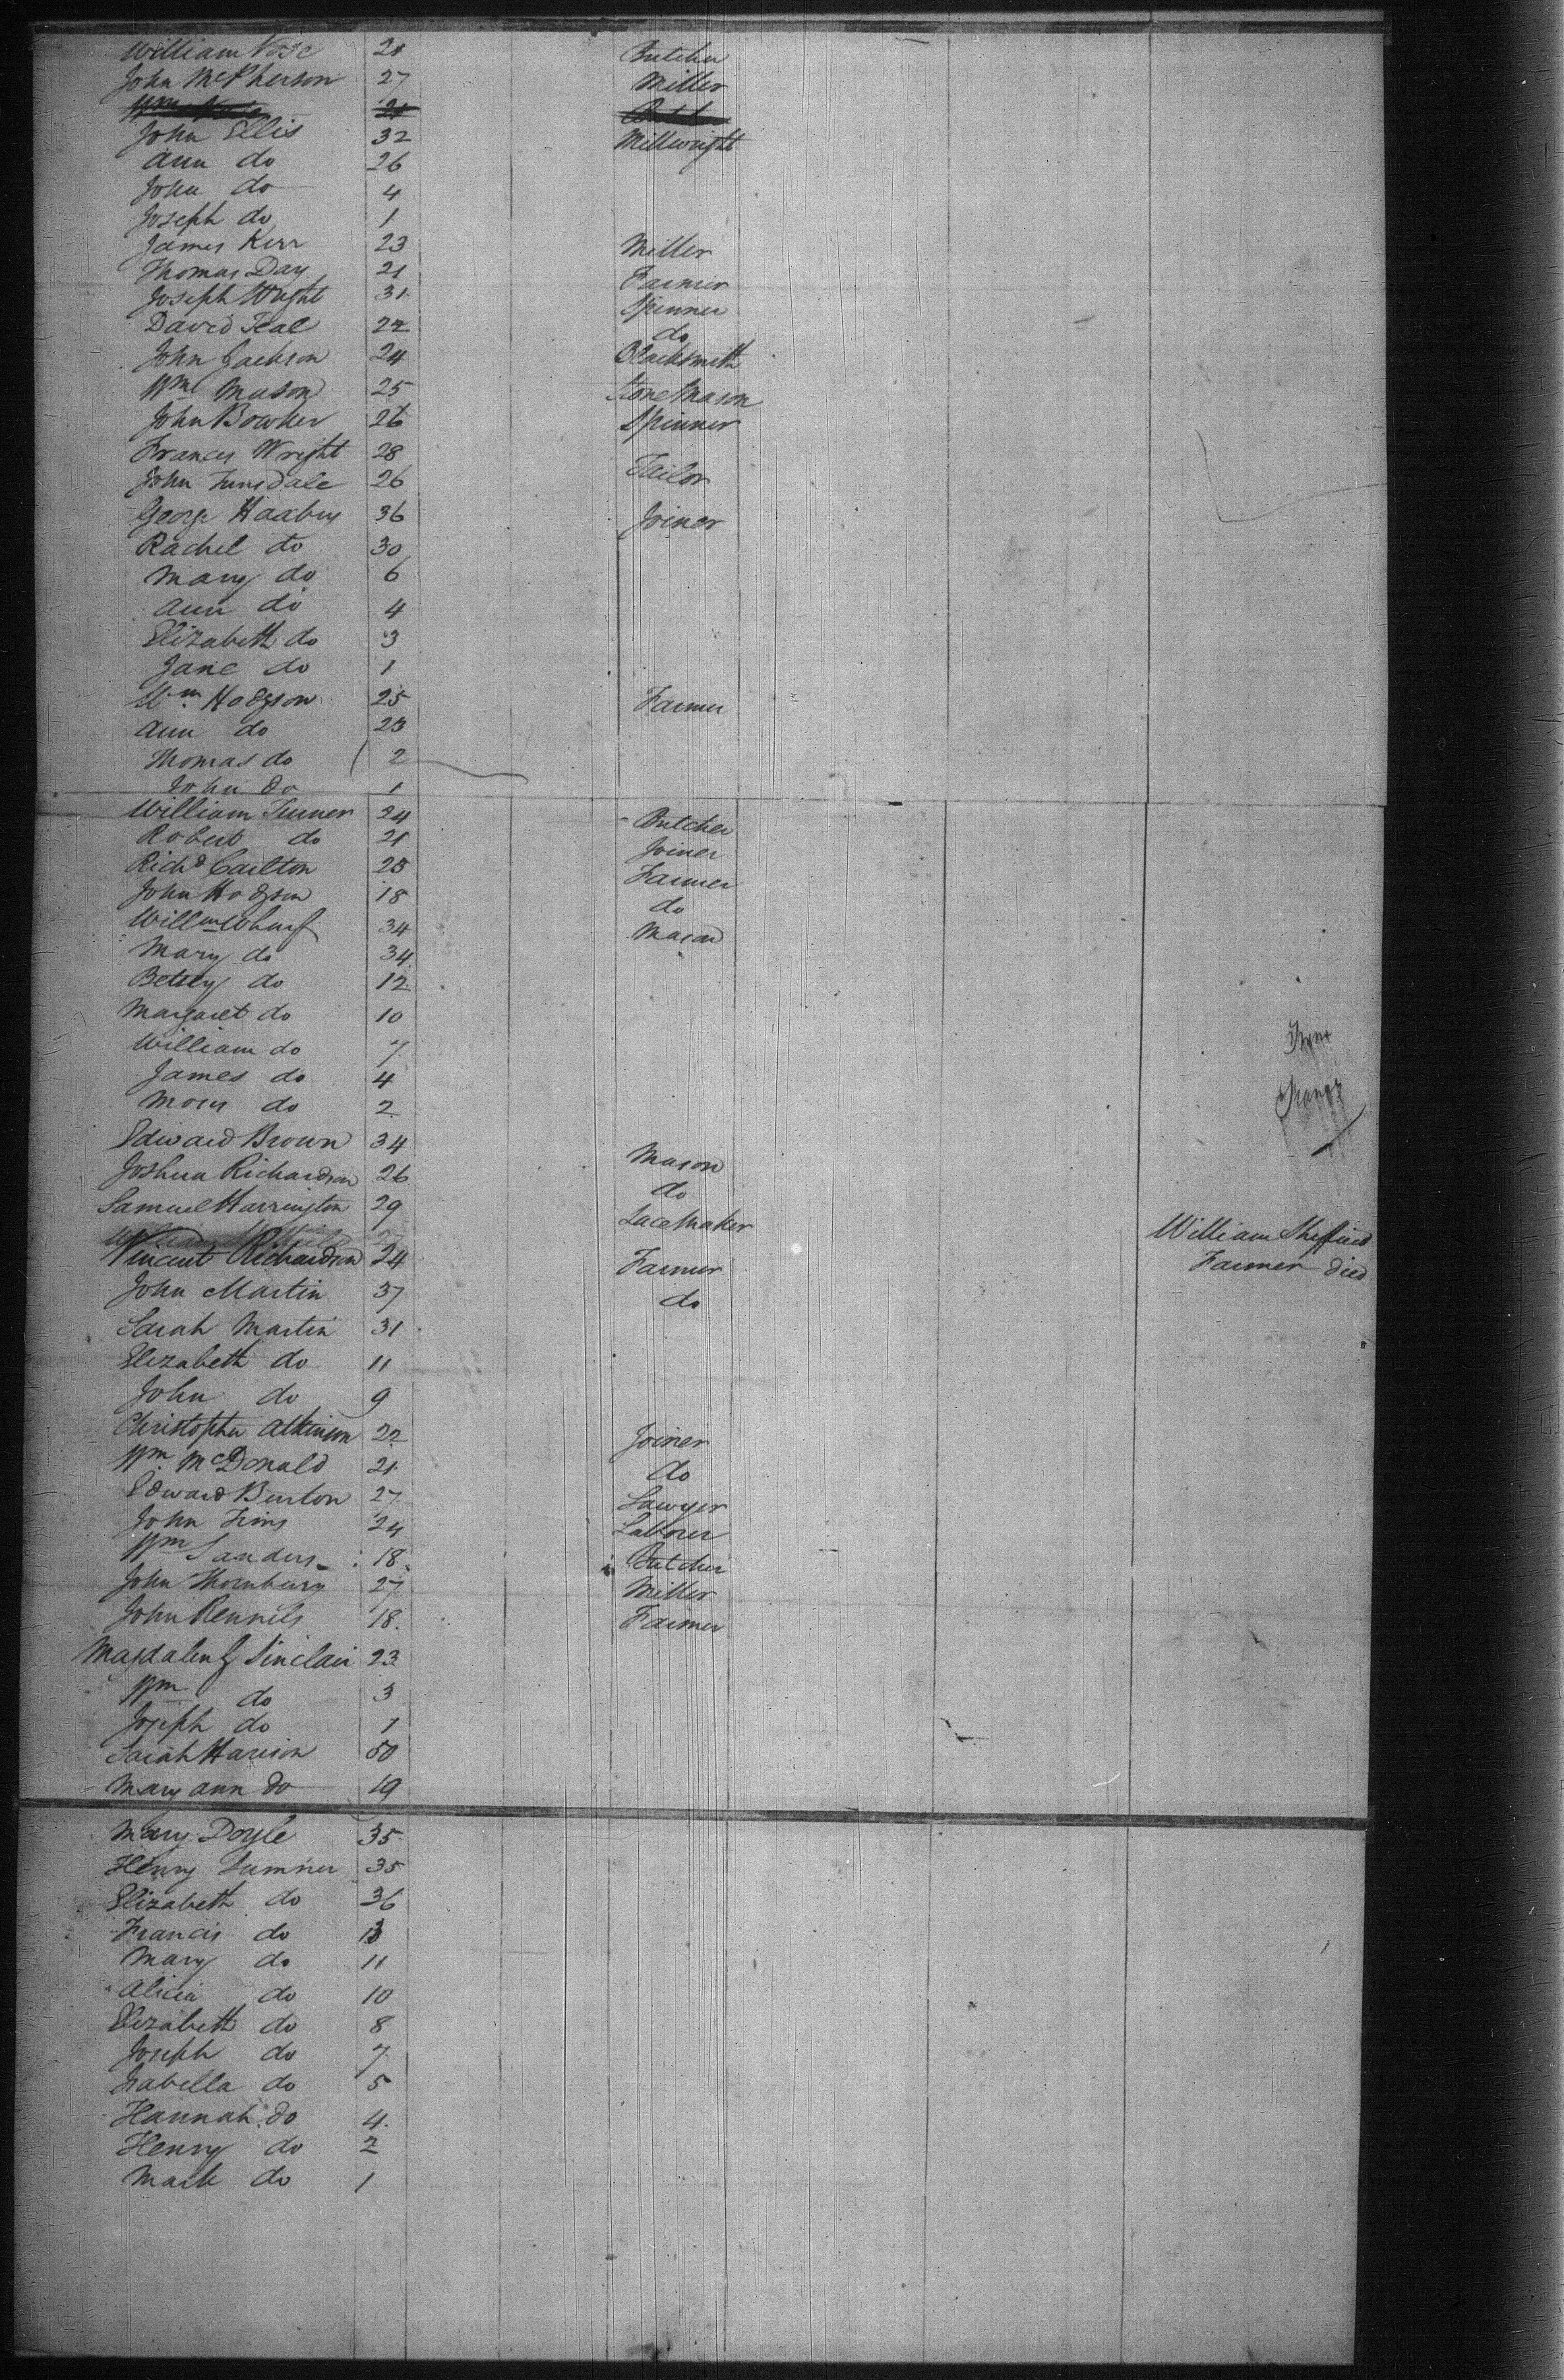 William Vose 21 Butcher
John McPherson 27 Miller
Wm 21
John Ellis 32 Millwright
Ann do 26
John do 4
Joseph do 1
James Kerr 23 Miller
Thomas Day 21 Farmer
Joseph Wright 31 Spinner
David Teal 22 do
John Jackson 24 Blacksmith
Wm Mason 25 Stone Mason
John Bowker 26 Spinner
Frances Wright 28
John Tunsdale 26 Tailor
George Haxby 36 Joiner
Rachel do 30
Mary do 6
Ann do 4
Elizabeth do 3
Jane do 1
Wm Hodgson 25 Farmer
Ann do 23
Thomas do 2
John do 1
William Turner 24 Butcher
Robert do 21 Joiner
Richd Carlton 25 Farmer
John Hodgson 18 do
Willm Wharf 34 Mason
Mary do 34
Betsey do 12
Margaret do 10
William do 7
James do 4
Moses do 2
Edward Brown 34 Mason
Joshua Richardson 26 do
Samuel Harrington 29 Lace Maker
William Sheffield
Vincent Richardson 24 Farmer Farmer died
John Martin 37 do
Sarah Martin 31
Elizabeth do 11
John do 9
Christopher Atkinson 22 Joiner
Wm McDonald 21 do
Edward Burton 27 Sawyer
John Tims 24 Labourer
Wm Sanders 18 Butcher
John Thornburry 27 Miller
John Rennils 18 Farmer
Magdalen Sinclair 23
Wm do 3
Joseph do 1
Sarah Harrison 50
Mary Ann do 19
Mary Doyle 35
Henry Sumner 35
Elizabeth do 36
Francis do 13
Mary do 11
Alicia do 10
Elizabeth do 8
Joseph do 7
Isabella do 5
Hannah do 4
Henry do 2
Mark do 1